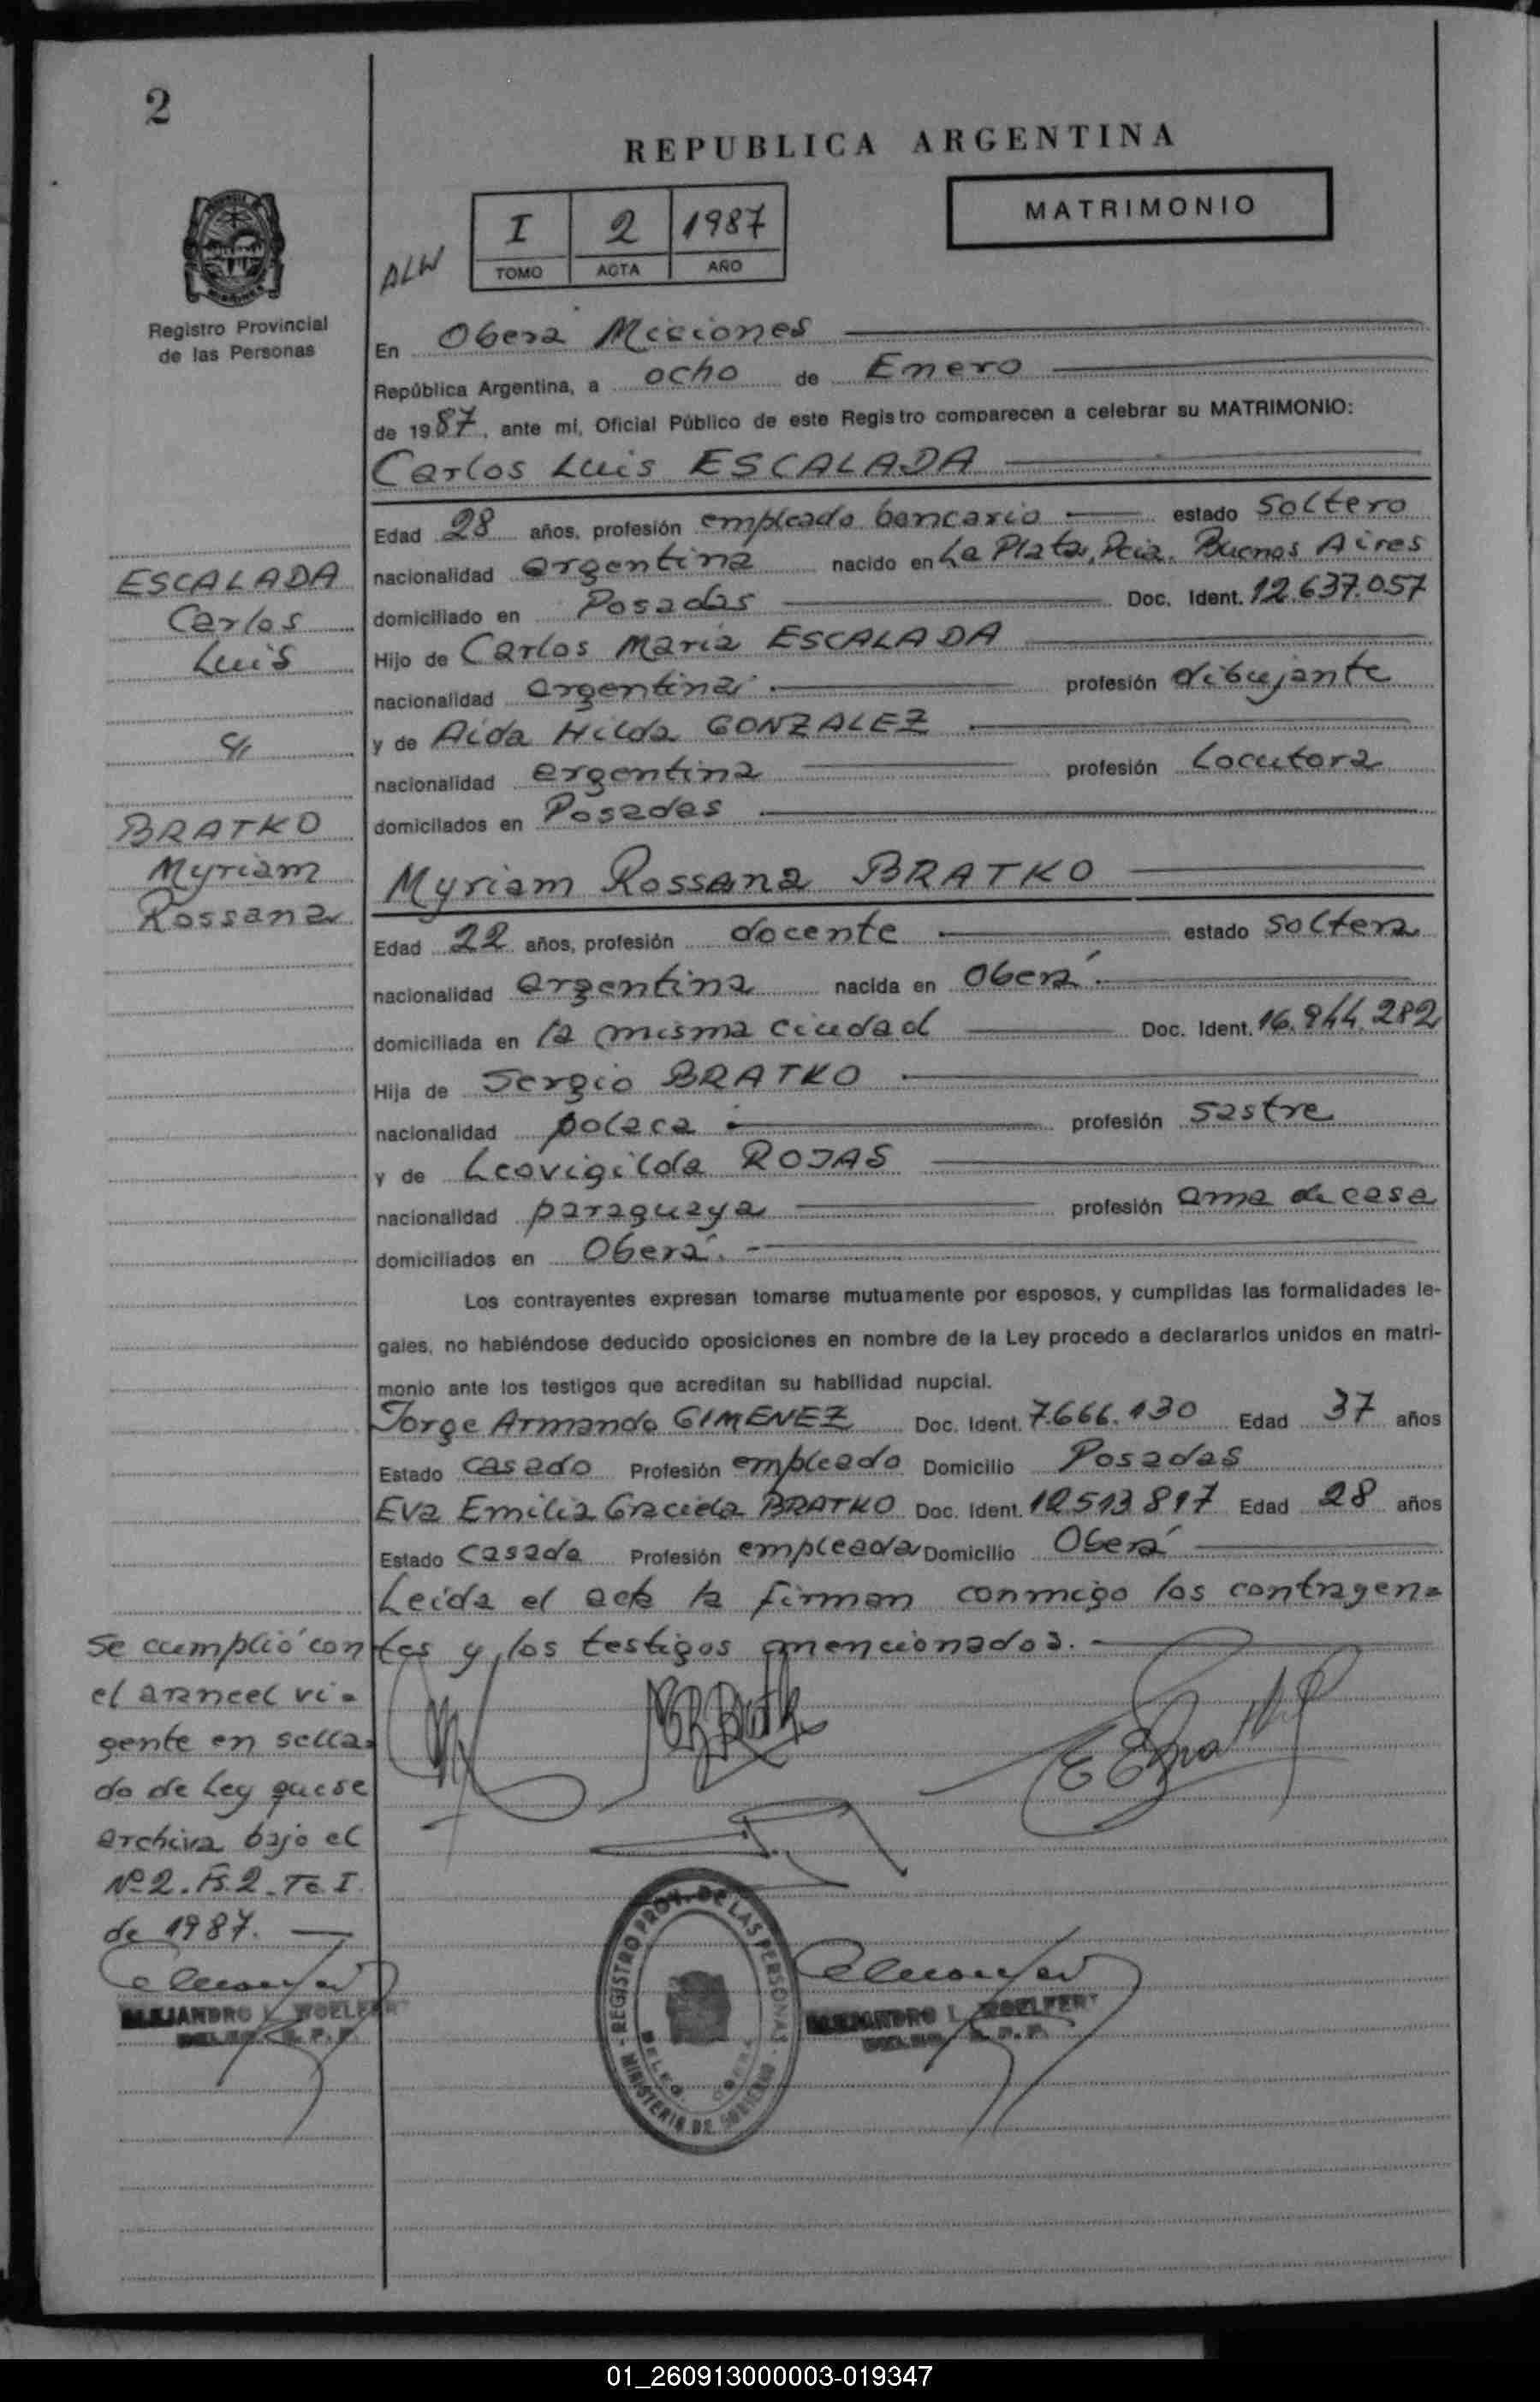 2
REPUBLICA ARGENTINA
MATRIMONIO
I 2 1987
TOMO ACTA AÑO
ALW
Registro Provincial
de las Personas
En Oberá Misiones
República Argentina, a ocho de Enero
de 1987, ante mí, Oficial Público de este Registro comparecen a celebrar su MATRIMONIO:
Carlos Luis ESCALADA
Edad 28 años, profesión empleado bancario estado soltero
nacionalidad argentina nacido en La Plata, Pcia. Buenos Aires
domiciliado en Posadas Doc. Ident. 12.637.057
Hijo de Carlos María ESCALADA
nacionalidad argentina profesión dibujante
y de Aida Hilda GONZALEZ
nacionalidad argentina profesión Locutora
domicilados en Posadas
Myriam Rossana BRATKO
Edad 22 años, profesión docente estado soltera
nacionalidad argentina nacida en Oberá
domiciliada en la misma ciudad Doc. Ident. 16.944.282
Hija de Sergio BRATKO
nacionalidad polaca profesión sastre
y de Leovigilda ROJAS
nacionalidad paraguaya profesión ama de casa
domiciliados en Oberá.
Los contrayentes expresan tomarse mutuamente por esposos, y cumplidas las formalidades le-
gales, no habiéndose deducido oposiciones en nombre de la Ley procedo a declararlos unidos en matri-
monio ante los testigos que acreditan su habilidad nupcial.
Jorge Armando GIMENEZ Doc. Ident. 7.666.130 Edad 37 años
Estado casado Profesión empleado Domicilio Posadas
Eva Emilia Graciela BRATKO Doc. Ident. 12513.817 Edad 28 años
Estado casada Profesión empleada Domicilio Oberá
Leída el acta la firman conmigo los contrayen=
tes y los testigos mencionados.
ESCALADA
Carlos
Luis
c/
BRATKO
Myriam
Rossana
Se cumplió con
el arancel vi=
gente en sella=
do de Ley que se
archiva bajo el
Nº 2. Fs. 2. Tº. I
de 1987.
ALEJANDRO L. WOELFERT
REGISTRO PROV. DE LAS PERSONAS
MINISTERIO DE GOBIERNO
ALEJANDRO L. WOELFERT
01_260913000003-019347